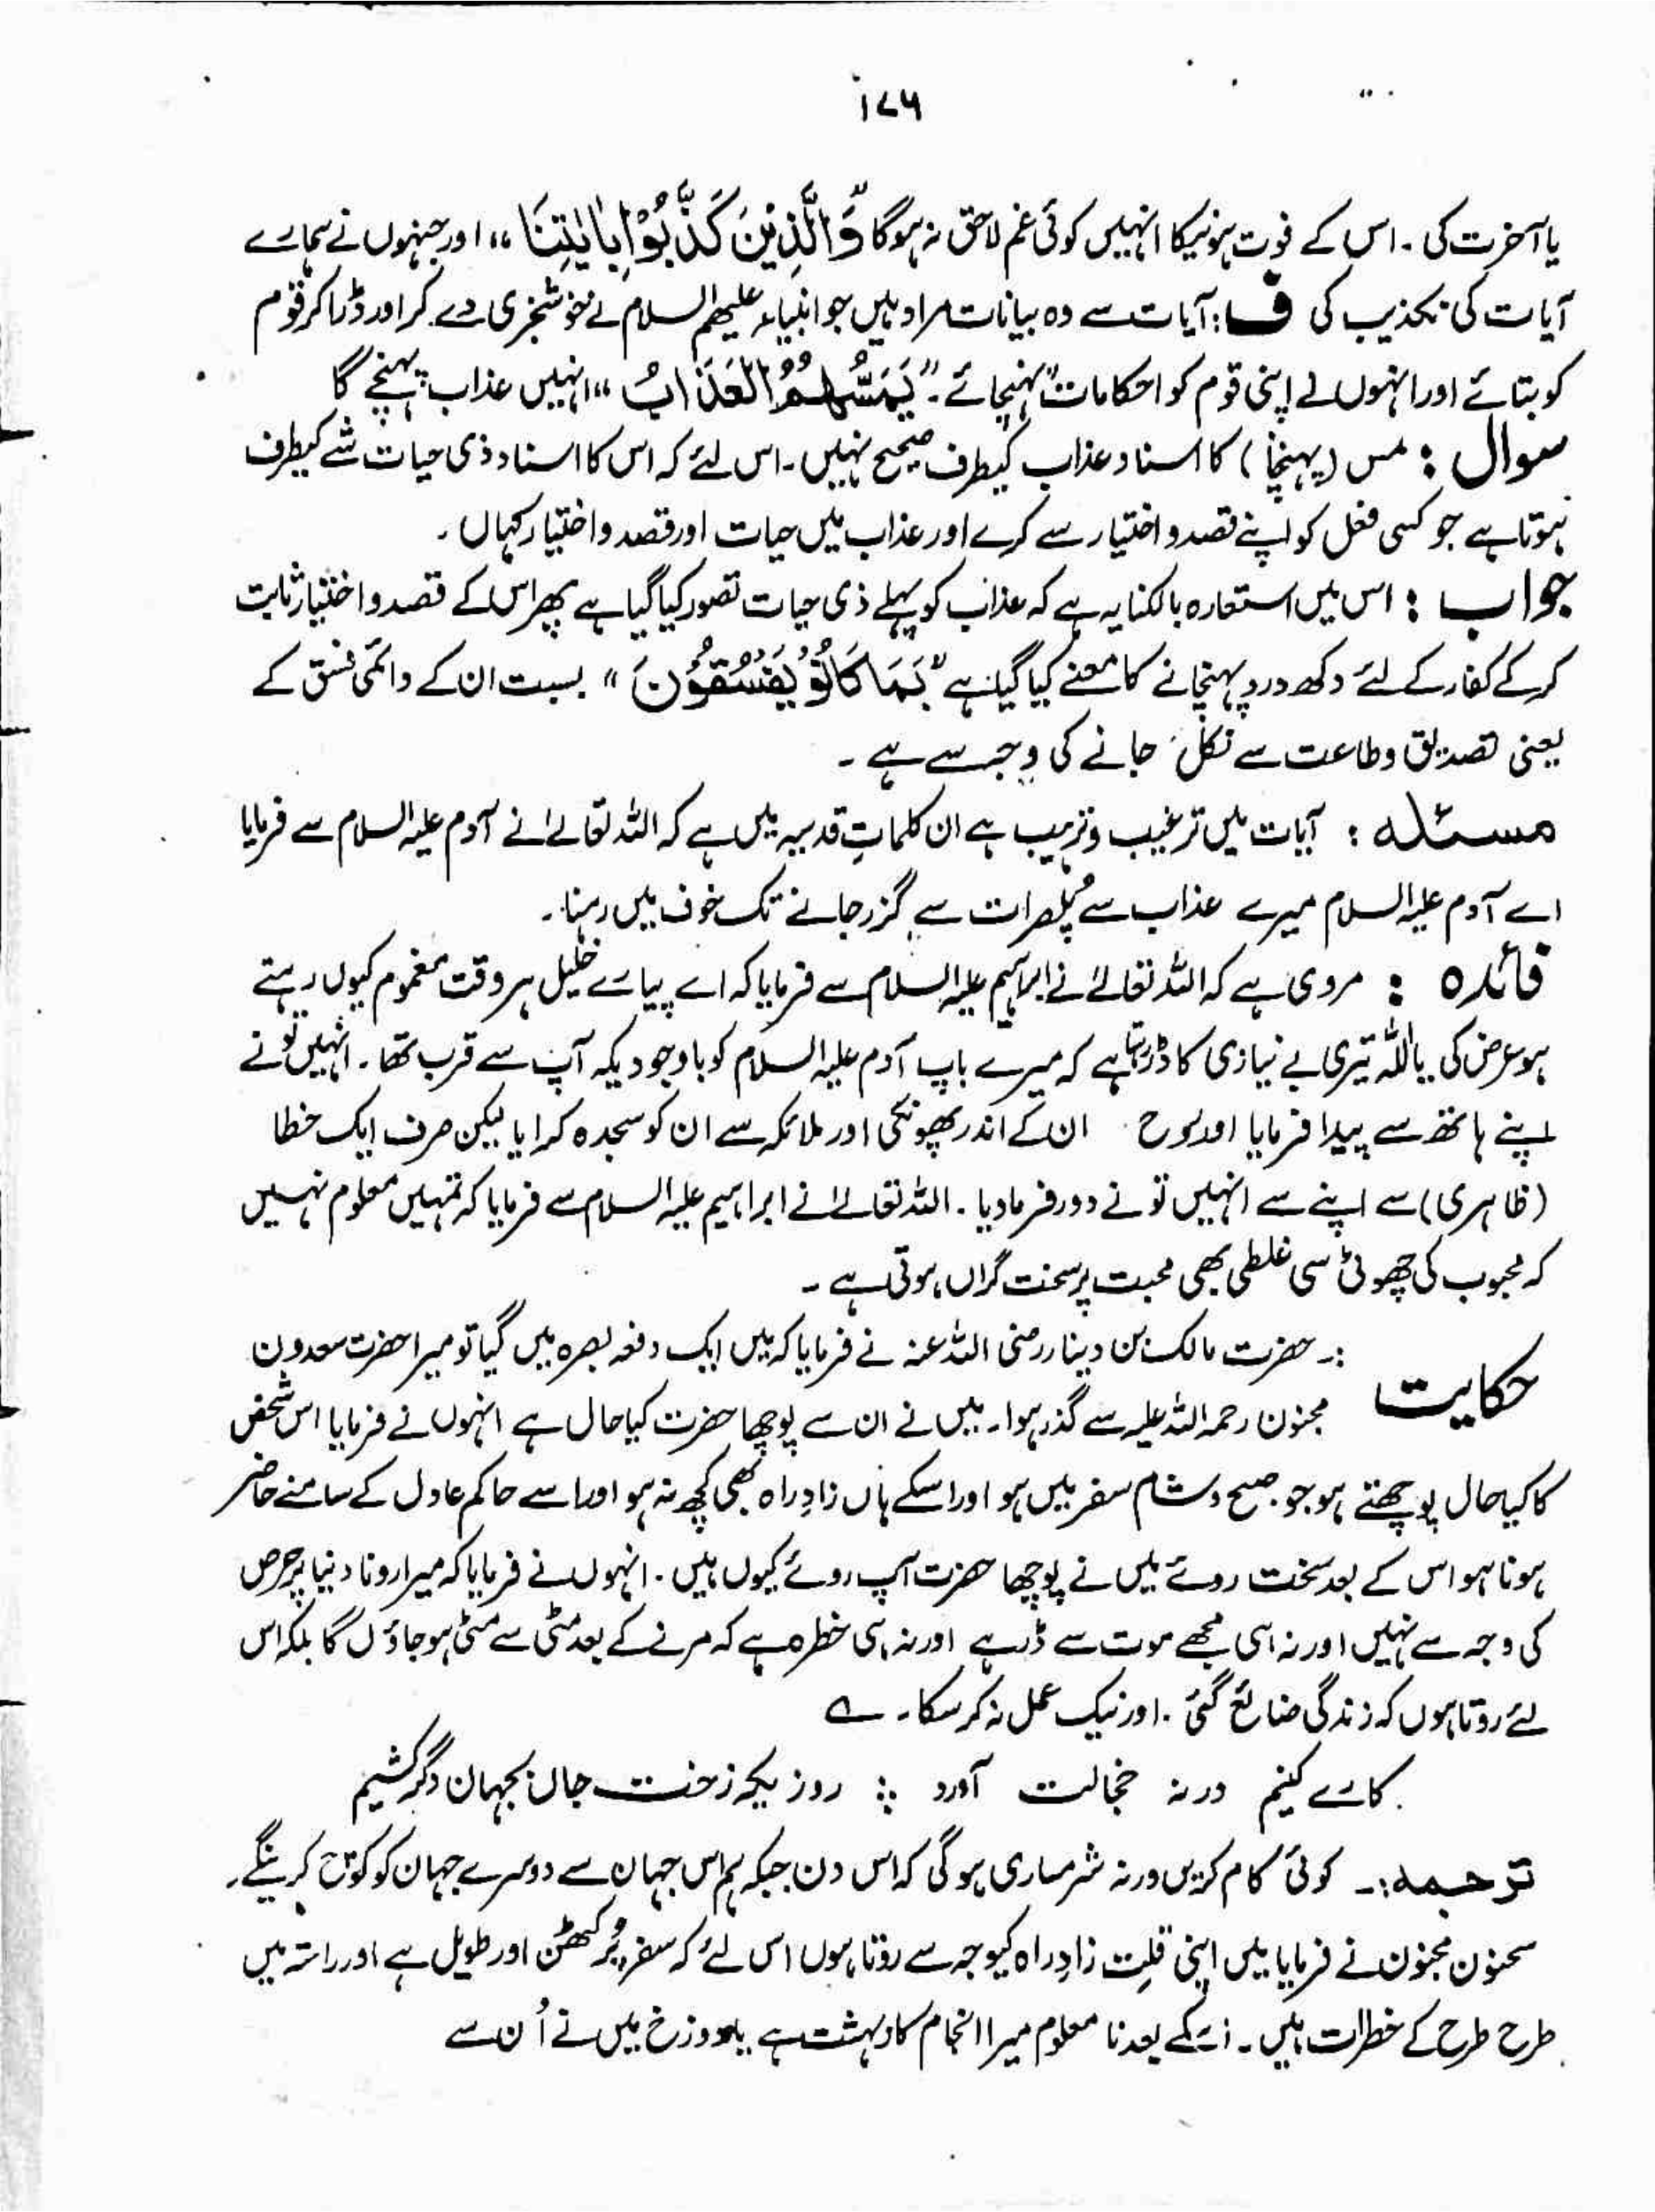 ۱۷۶
یا آخرت کی ۔ اس کے فوت ہونیکا انہیں کوئی غم لاحق نہ ہوگا وَّالَّذِیْنَ کَذَّبُوْا بِاٰیٰتِنَا ،، اور جنہوں نے ہمارے
آیات کی تکذیب کی ف : آیات سے وہ بیانات مراد ہیں جو انبیاء علیہم السلام نے خوشخبری دے کر اور ڈرا کر قوم
کو بتائے اور انہوں نے اپنی قوم کو احکامات پہنچائے ۔ "یَمَسُّهُمُ الْعَذَابُ ،، انہیں عذاب پہنچے گا
سوال : مس (پہنچنا) کا اسناد عذاب کیطرف صحیح نہیں ۔ اس لئے کہ اس کا اسناد ذی حیات شے کیطرف
ہوتا ہے جو کسی فعل کو اپنے قصد و اختیار سے کرے اور عذاب میں حیات اور قصد و اختیار کہاں ۔
جواب : اس میں استعارہ بالکنایہ ہے کہ عذاب کو پہلے ذی حیات تصور کیا گیا ہے پھر اس کے قصد و اختیار ثابت
کر کے کفار کے لئے دکھ درد پہنچانے کا معنے کیا گیا ہے "بِمَا کَانُوْ یَفْسُقُوْنَ ،، بسبت ان کے دائمی فسق کے
یعنی تصدیق و طاعت سے نکل جانے کی وجہ سے ہے ۔
مسئلہ : آیات میں ترغیب و ترہیب ہے ان کلماتِ قدسیہ میں ہے کہ اللہ تعالےٰ نے آدم علیہ السلام سے فرمایا
اے آدم علیہ السلام میرے عذاب سے پُلصرات سے گزر جانے تک خوف میں رہنا ۔
فائدہ : مروی ہے کہ اللہ تعالےٰ نے ابراہیم علیہ السلام سے فرمایا کہ اے پیارے خلیل ہر وقت مغموم کیوں رہتے
ہو عرض کی یا اللہ تیری بے نیازی کا ڈر رہتا ہے کہ میرے باپ آدم علیہ السلام کو باوجودیکہ آپ سے قرب تھا ۔ انہیں تُو نے
اپنے ہاتھ سے پیدا فرمایا اور روح ان کے اندر پھونکی اور ملائکہ سے ان کو سجدہ کرایا لیکن صرف ایک خطا
(ظاہری) سے اپنے سے انہیں تو نے دور فرمادیا ۔ اللہ تعالےٰ نے ابراہیم علیہ السلام سے فرمایا کہ تمہیں معلوم نہیں
کہ محبوب کی چھوٹی سی غلطی بھی محبت پر سخت گراں ہوتی ہے ۔
حکایت :۔ حضرت مالک بن دینار رضی اللہ عنہ نے فرمایا کہ میں ایک دفعہ بصرہ میں گیا تو میرا حضرت سعدون
مجنون رحمہ اللہ علیہ سے گذر ہوا ۔ میں نے ان سے پوچھا حضرت کیا حال ہے انہوں نے فرمایا اس شخص
کا کیا حال پوچھتے ہو جو صبح و شام سفر میں ہو اور اسکے ہاں زادِ راہ بھی کچھ نہ ہو اور اسے حاکم عادل کے سامنے حاضر
ہونا ہو اس کے بعد سخت روئے میں نے پوچھا حضرت آپ روئے کیوں ہیں ۔ انہوں نے فرمایا کہ میرا رونا دنیا پر حرص
کی وجہ سے نہیں اور نہ ہی مجھے موت سے ڈر ہے اور نہ ہی خطرہ ہے کہ مرنے کے بعد مٹی سے مٹی ہو جاؤں گا بلکہ اس
لئے روتا ہوں کہ زندگی ضائع گئی ۔ اور نیک عمل نہ کر سکا ۔ ے
کارے کنیم ورنہ خجالت آورد ؛ روز یکہ رخت جان بجہان دگر کشیم
ترجمہ :۔ کوئی کام کریں ورنہ شرمساری ہوگی کہ اس دن جبکہ ہم اس جہان سے دوسرے جہان کو کوچ کرینگے ۔
سحنون مجنون نے فرمایا میں اپنی قلت زادِ راہ کیوجہ سے روتا ہوں اس لئے کہ سفر پُر کٹھن اور طویل ہے اور راستہ میں
طرح طرح کے خطرات ہیں ۔ اسکے بعد نا معلوم میرا انجام کار بہشت ہے یا دوزخ میں نے اُن سے